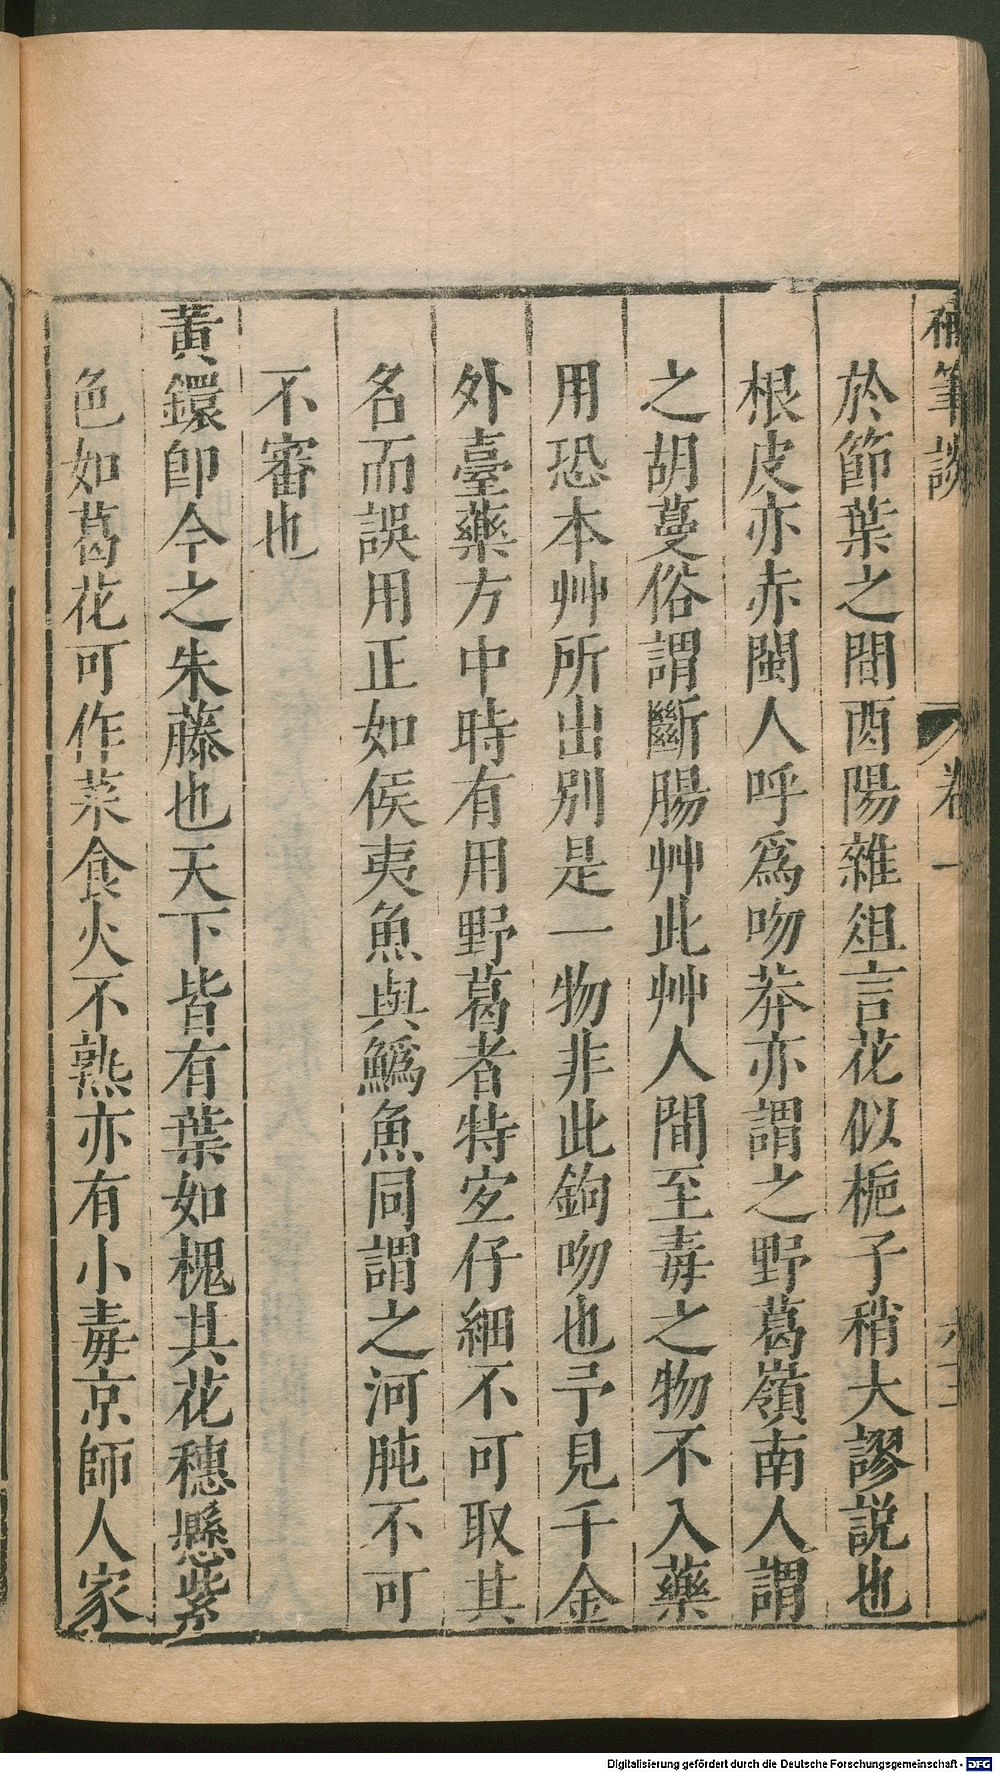 補筆談 卷一
於節葉之間酉陽雜俎言花似梔子稍大謬說也
根皮亦赤閩人呼爲吻莽亦謂之野葛嶺南人謂
之胡蔓俗謂斷腸艸此艸人間至毒之物不入藥
用恐本艸所出別是一物非此鉤吻也予見千金
外臺藥方中時有用野葛者特宐仔細不可取其
名而誤用正如侯夷魚與鰞魚同謂之河肫不可
不審也
黃鐶卽今之朱藤也天下皆有葉如槐其花穗懸紫
色如葛花可作菜食火不熟亦有小毒京師人家
Digitalisierung gefördert durch die Deutsche Forschungsgemeinschaft - DFG